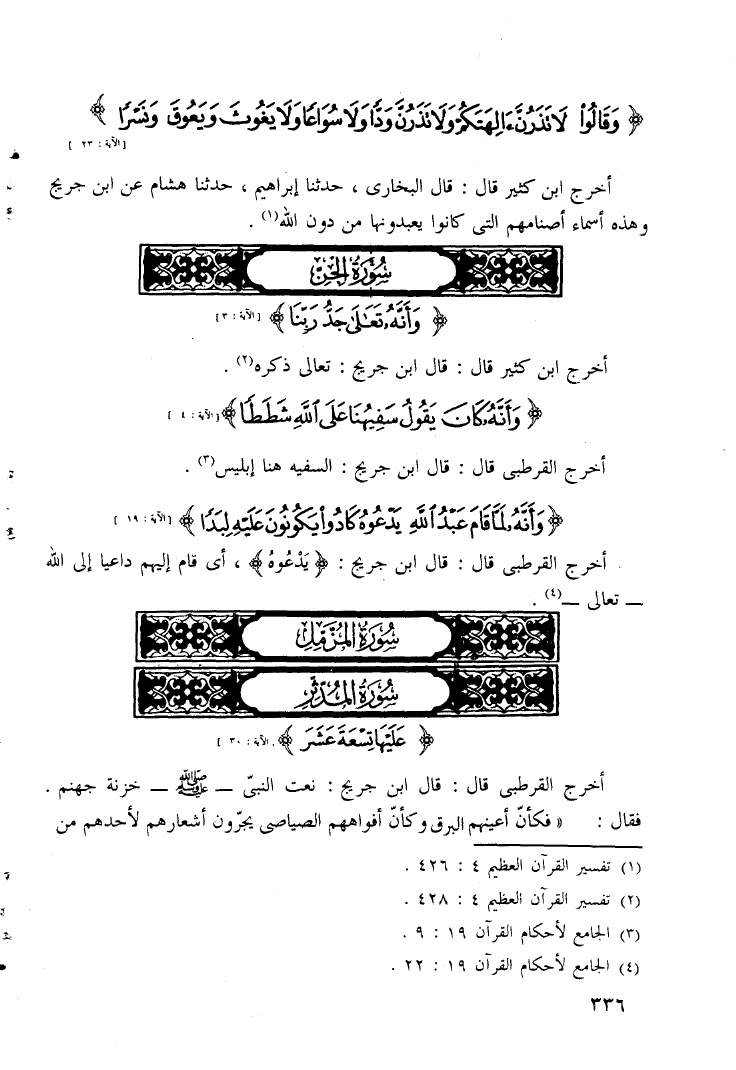 ﴿ وَقَالُوا۟ لَا تَذَرُنَّ ءَالِهَتَكُمْ وَلَا تَذَرُنَّ وَدًّا وَلَا سُوَاعًا وَلَا يَغُوثَ وَيَعُوقَ وَنَسْرًا ﴾
[ الآية : ٢٣ ]
أخرج ابن كثير قال : قال البخارى ، حدثنا إبراهيم ، حدثنا هشام عن ابن جريج
وهذه أسماء أصنامهم التى كانوا يعبدونها من دون الله(١) .
سُورَةُ الجِن
﴿ وَأَنَّهُۥ تَعَٰلَىٰ جَدُّ رَبِّنَا ﴾ [ الآية : ٣ ]
أخرج ابن كثير قال : قال ابن جريج : تعالى ذكره(٢) .
﴿ وَأَنَّهُۥ كَانَ يَقُولُ سَفِيهُنَا عَلَى ٱللَّهِ شَطَطًا ﴾ [ الآية : ٤ ]
أخرج القرطبى قال : قال ابن جريج : السفيه هنا إبليس(٣) .
﴿ وَأَنَّهُۥ لَمَّا قَامَ عَبْدُ ٱللَّهِ يَدْعُوهُ كَادُوا۟ يَكُونُونَ عَلَيْهِ لِبَدًا ﴾ [ الآية : ١٩ ]
أخرج القرطبى قال : قال ابن جريج : ﴿ يَدْعُوهُ ﴾ ، أى قام إليهم داعيا إلى الله
— تعالى —(٤) .
سُورَةُ المُزَّمِّل
سُورَةُ المُدَّثِّر
﴿ عَلَيْهَا تِسْعَةَ عَشَرَ ﴾ [ الآية : ٣٠ ]
أخرج القرطبى قال : قال ابن جريج : نعت النبىّ — ﷺ — خزنة جهنم .
فقال : « فكأنّ أعينهم البرق وكأنّ أفواههم الصياصى يجرّون أشعارهم لأحدهم من
(١) تفسير القرآن العظيم ٤ : ٤٢٦ .
(٢) تفسير القرآن العظيم ٤ : ٤٢٨ .
(٣) الجامع لأحكام القرآن ١٩ : ٩ .
(٤) الجامع لأحكام القرآن ١٩ : ٢٢ .
٣٣٦